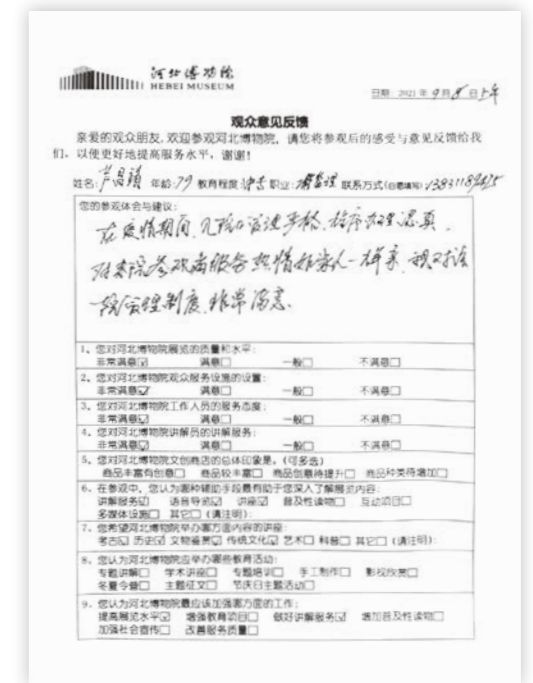 河北博物院
HEBEI MUSEUM
日期: 2021 年 9 月 8 日上午
观众意见反馈
亲爱的观众朋友, 欢迎参观河北博物院, 请您将参观后的感受与意见反馈给我
们, 以便更好地提高服务水平, 谢谢!
姓名: 芦昌 年龄: 79 教育程度: 职业: 联系方式(自愿填写)
您的参观体会与建议:
在疫情期间, 严格, 认真,
对来院参观者服务热情 家人一样亲,
院管理制度, 非常满意.
1、您对河北博物院展览的质量和水平:
非常满意☑ 满意□ 一般□ 不满意□
2、您对河北博物院观众服务设施的设置:
非常满意☑ 满意□ 一般□ 不满意□
3、您对河北博物院工作人员的服务态度:
非常满意☑ 满意□ 一般□ 不满意□
4、您对河北博物院讲解员的讲解服务:
非常满意☑ 满意□ 一般□ 不满意□
5、您对河北博物院文创商店的总体印象是, (可多选)
商品丰富有创意□ 商品较丰富□ 商品创意待提升□ 商品种类待增加□
6、在参观中, 您认为哪种辅助手段最有助于您深入了解展览内容:
讲解服务☑ 语音导览☑ 讲座☑ 普及性读物□ 互动项目□
多媒体设施□ 其它□ (请注明):
7、您希望河北博物院举办哪方面内容的讲座:
考古☑ 历史☑ 文物鉴赏☑ 传统文化☑ 艺术□ 科普□ 其它□ (请注明):
8、您认为河北博物院应举办哪些教育活动:
专题讲解□ 学术讲座□ 专题培训□ 手工制作□ 影视欣赏□
冬夏令营□ 主题征文□ 节庆日主题活动□
9、您认为河北博物院最应该加强哪方面的工作:
提高展览水平☑ 增强教育项目□ 做好讲解服务☑ 增加普及性读物□
加强社会宣传□ 改善服务质量□